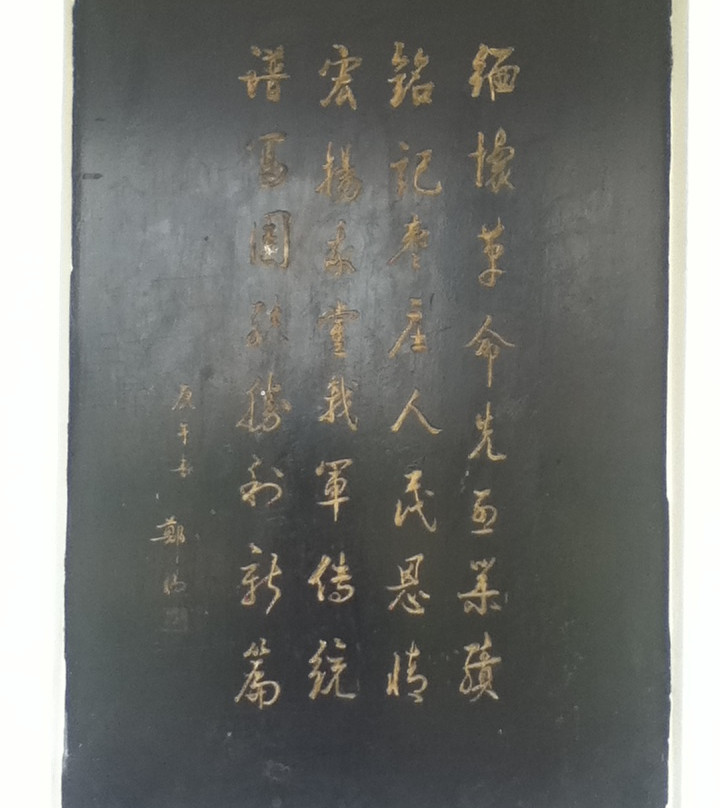 緬懷革命先烈業績
銘記棗庄人民恩情
宏揚我黨我軍傳統
譜寫團結勝利新篇
庚午春
鄭